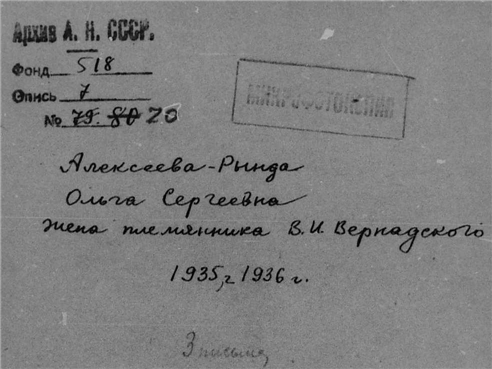 Архив А. Н. СССР.
Фонд 518
Опись 7
№ 79. 80 20
МИКРОФОТОКОПИЯ
Алексеева-Рында
Ольга Сергеевна
жена племянника В.И. Вернадского
1935, 1936 г.
3 письма